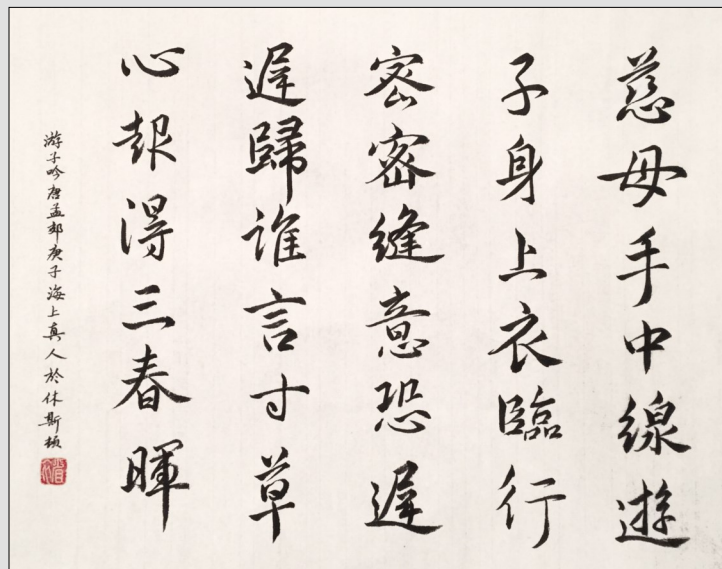 慈母手中線遊
子身上衣臨行
密密縫意恐遲
遲歸誰言寸草
心報得三春暉
游子吟唐孟郊庚子海上真人於休斯頓